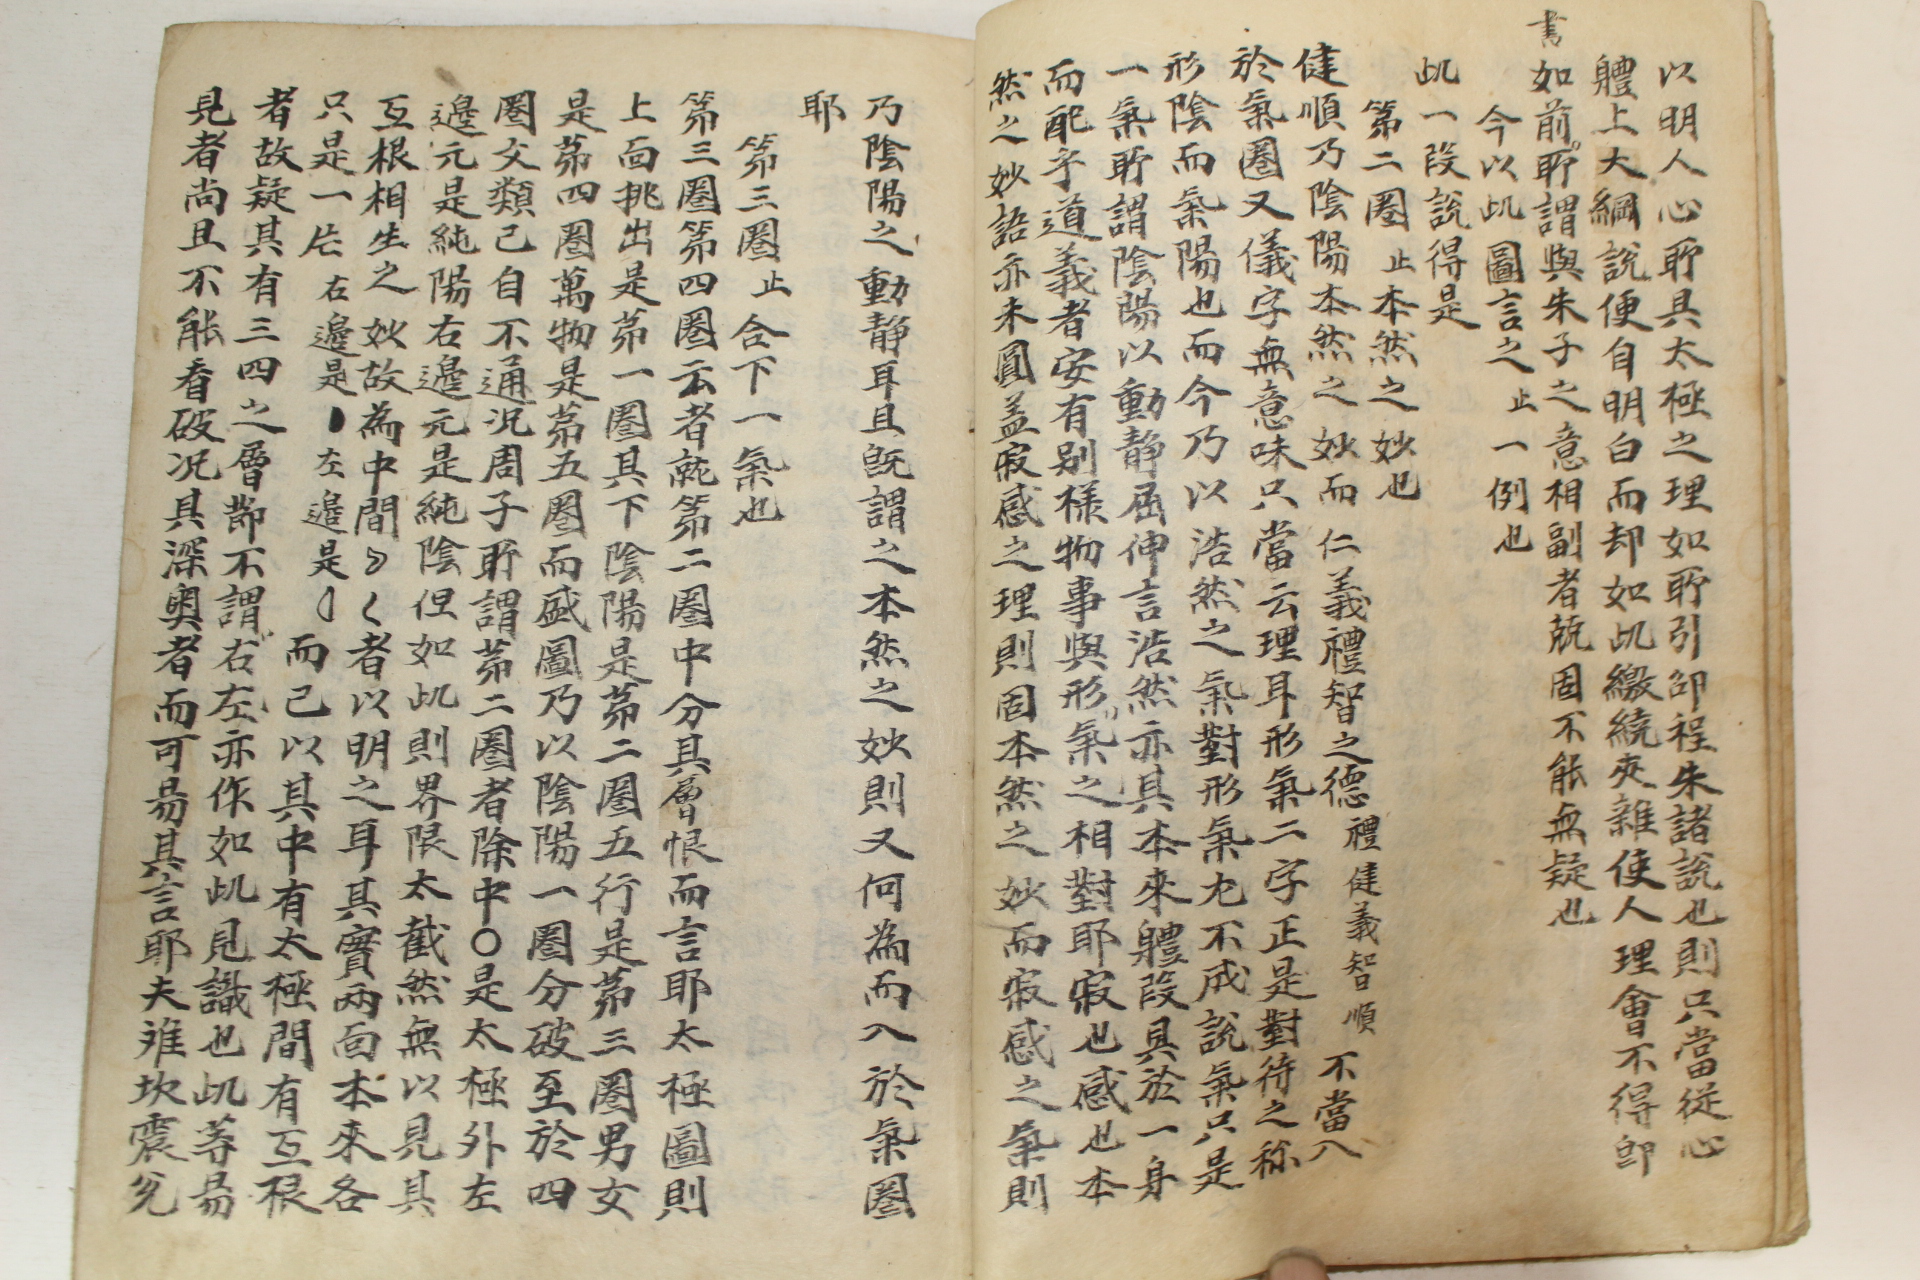 以明人心所具太極之理如所引邵程朱諸說也則只當從心
軆上大綱說便自明白而却如此繳繞夾雜使人理會不得卽
書
如前所謂與朱子之意相副者兢固不能無疑也
今以此圖言之止一例也
此一段說得是
第二圈止本然之妙也
健順乃陰陽本然之妙而仁義禮智之德禮健義智順不當入
於氣圈又儀字無意味只當云理耳形氣二字正是對待之称
形陰而氣陽也而今乃以浩然之氣對形氣尤不成說氣只是
一氣所謂陰陽以動静屈伸言浩然亦其本來軆段具於一身
而配乎道義者安有別様物事與形氣之相對耶寂也感也本
然之妙語亦未圓盖寂感之理則固本然之妙而寂感之氣則
乃陰陽之動静耳且旣謂之本然之妙則又何為而入於氣圈
耶
第三圈止合下一氣也
第三圈第四圈云者就第二圈中分其層恨而言耶太極圖則
上面挑出是苐一圈其下陰陽是苐二圈五行是苐三圈男女
是苐四圈萬物是苐五圈而盛圖乃以陰陽一圈分破至於四
圈父類已自不通况周子所謂苐二圈者除中〇是太極外左
邉元是純陽右邉元是純陰但如此則界限太截然無以見其
互根相生之妙故為中間者以明之耳其實兩面本來各
只是一片右邉是左邉是而已以其中有太極間有互根
者故疑其有三四之層節不謂右左亦作如此見識也此等易
見者尚且不能看破况其深奥者而可易其言耶夫雖坎震兊